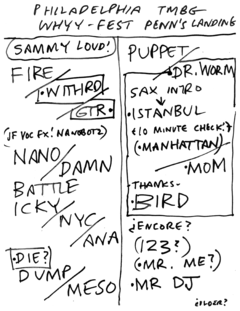 PHILADELPHIA TMBG
WHYY-FEST PENN'S LANDING
SAMMY LOUD!
FIRE
·WITHRD
GTR·
(IF VOC FX! NANOBOTZ)
NANO
DAMN
BATTLE
ICKY
NYC
ANA
·DIE?
DUMP
MESO
PUPPET
·DR. WORM
SAX INTRO
·ISTANBUL
10 MINUTE CHECK!
(·MANHATTAN)
·MOM
THANKS-
BIRD
¿ENCORE?
(123?)
(·MR. ME?)
·MR DJ